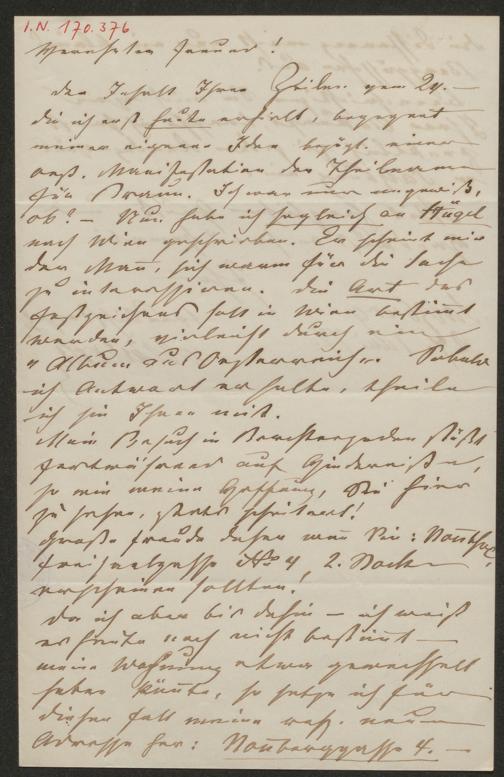 I.N. 170.376
Verehrter Freund!
Der Inhalt Ihrer Zeilen vom 24. —
die ich erst heute erhielt, begegnet
meiner eigenen Idee bezügl. einer
Manifestation der Theilnahme
für Braun. Ich war nur ungewiß,
ob? — Nun habe ich sogleich an Hügel
nach Wien geschrieben. Er scheint mir
der Mann, sich warm für die Sache
zu interessiren. Die Art des
Festzeichens soll in Wien bestimmt
werden, vielleicht durch ein
"Album aus Oesterreich". Sobald
ich Antwort erhalte, theile
ich sie Ihnen mit.
Mein Besuch in Berchtesgaden stößt
fortwährend auf Hindernisse,
so wie meine Hoffnung, Sie hier
zu sehen, stets scheitert!
Große Freude daher wenn Sie:
No 4, 2. Stock
erscheinen sollten.
Da ich aber bis dahin — ich weiß
es heute noch nicht bestimmt —
meine Wohnung etwa gewechselt
haben könnte, so setze ich für
diesen Fall meine neue
Adresse her: Nonberggasse 4. —